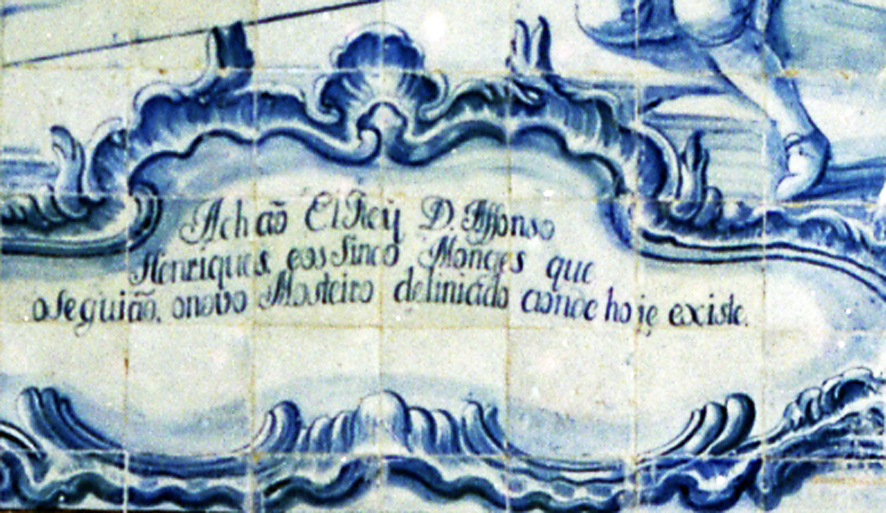 Achaõ ElReÿ D. Affonso
Henriques, eos Sinco Monges que
oseguiaõ, onovo Mosteiro deliniado aonde hoje existe.